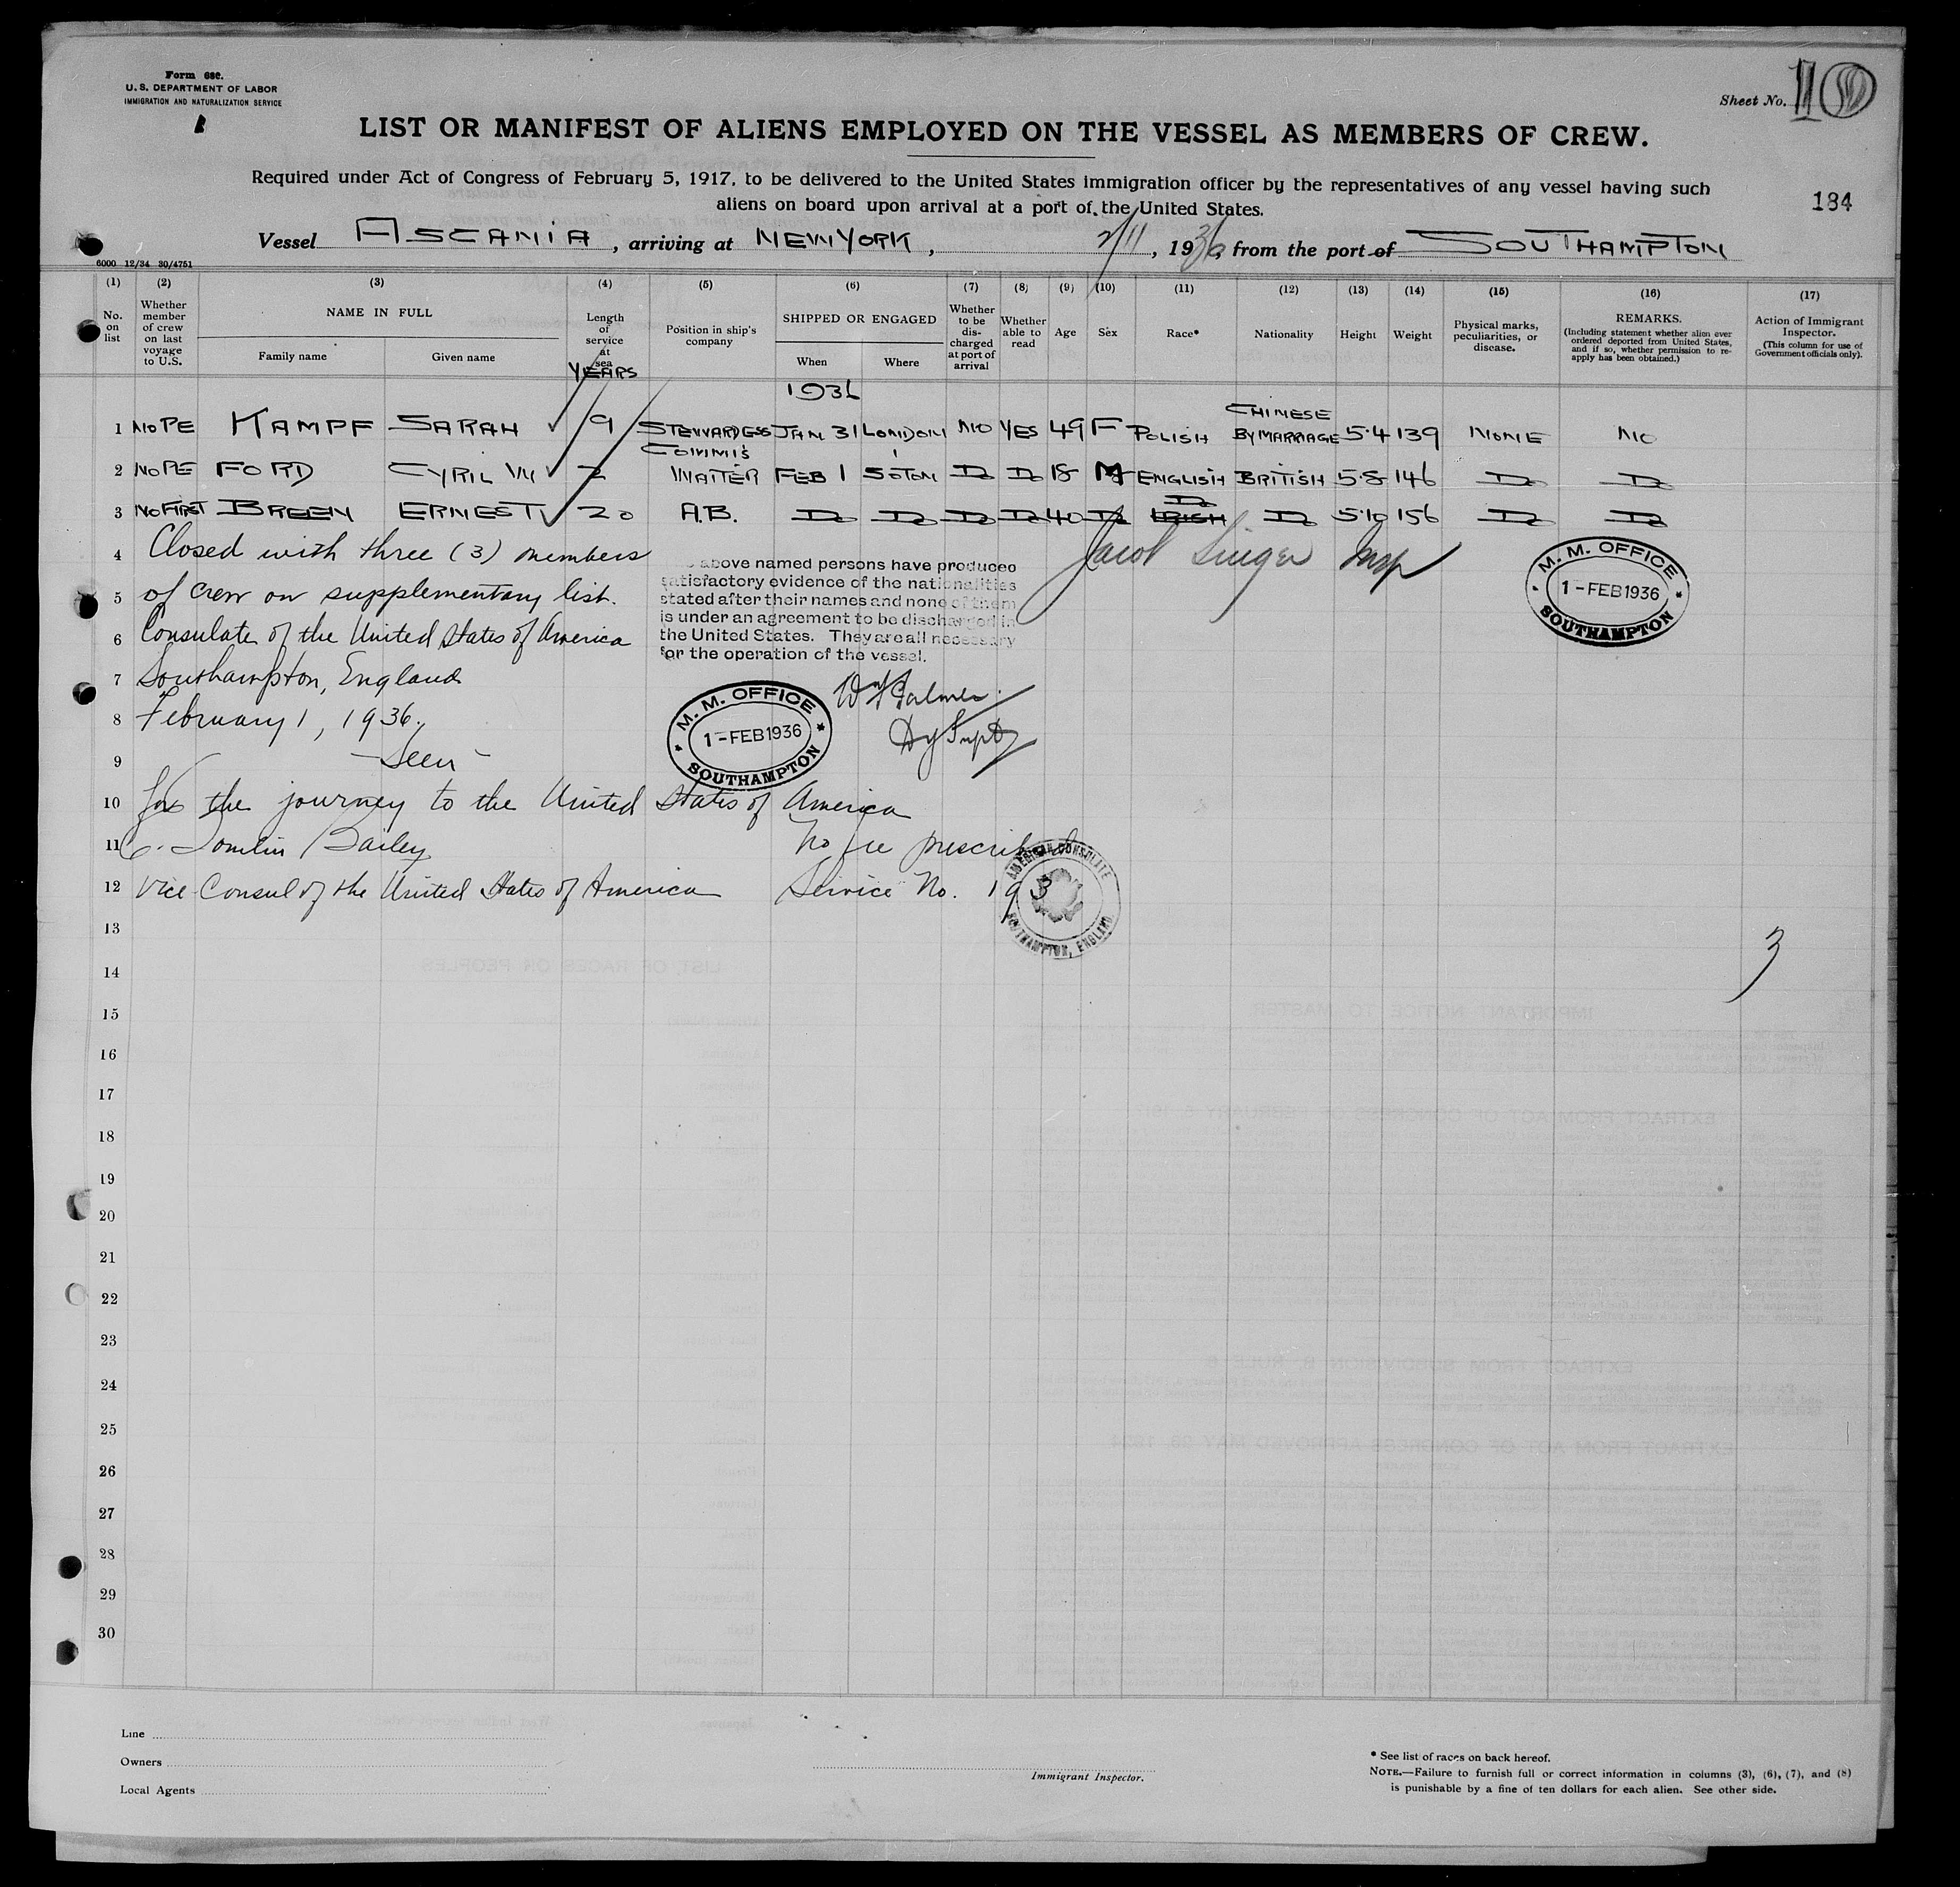 Form 680.
U. S. DEPARTMENT OF LABOR
IMMIGRATION AND NATURALIZATION SERVICE
Sheet No. 10
LIST OR MANIFEST OF ALIENS EMPLOYED ON THE VESSEL AS MEMBERS OF CREW.
Required under Act of Congress of February 5, 1917, to be delivered to the United States immigration officer by the representatives of any vessel having such
aliens on board upon arrival at a port of the United States.
184
Vessel ASCANIA, arriving at NEW YORK, 2/11, 1936, from the port of SOUTHAMPTON
6000 12/34 30/4751
(1) (2) (3) (4) (5) (6) (7) (8) (9) (10) (11) (12) (13) (14) (15) (16) (17)
No. on list
Whether member of crew on last voyage to U.S.
NAME IN FULL
Family name
Given name
Length of service at sea
YEARS
Position in ship's company
SHIPPED OR ENGAGED
When
Where
Whether to be discharged at port of arrival
Whether able to read
Age
Sex
Race*
Nationality
Height
Weight
Physical marks, peculiarities, or disease.
REMARKS.
(Including statement whether alien ever ordered deported from United States, and if so, whether permission to reapply has been obtained.)
Action of Immigrant Inspector.
(This column for use of Government officials only).
1936
1 NO PE KAMPF SARAH 9 STEWARDESS JAN 31 LONDON NO YES 49 F POLISH CHINESE BY MARRIAGE 5·4 139 NONE NO
2 NO PE FORD CYRIL W 2 COMMIS WAITER FEB 1 SOTON D D 18 M ENGLISH BRITISH 5·8 146 D D
3 NO FIRST BREEN ERNEST 20 A.B. D D D D 40 D IRISH D D 5·10 156 D D
4 Closed with three (3) members
5 of crew on supplementary list.
6 Consulate of the United States of America
7 Southampton, England
8 February 1, 1936.
9 - Seen -
10 for the journey to the United States of America
11 Tomlin Bailey No fee prescribed
12 Vice Consul of the United States of America Service No. 193
above named persons have produced
satisfactory evidence of the nationalities
stated after their names and none of them
is under an agreement to be discharged in
the United States. They are all necessary
for the operation of the vessel.
Jacob Singer Insp
M. M. OFFICE
1-FEB 1936
SOUTHAMPTON
M. M. OFFICE
1-FEB 1936
SOUTHAMPTON
Dy Supt
AMERICAN CONSULATE
SOUTHAMPTON, ENGLAND
3
13
14
15
16
17
18
19
20
21
22
23
24
25
26
27
28
29
30
Line
Owners
Local Agents
Immigrant Inspector.
* See list of races on back hereof.
NOTE.—Failure to furnish full or correct information in columns (3), (6), (7), and (8)
is punishable by a fine of ten dollars for each alien. See other side.